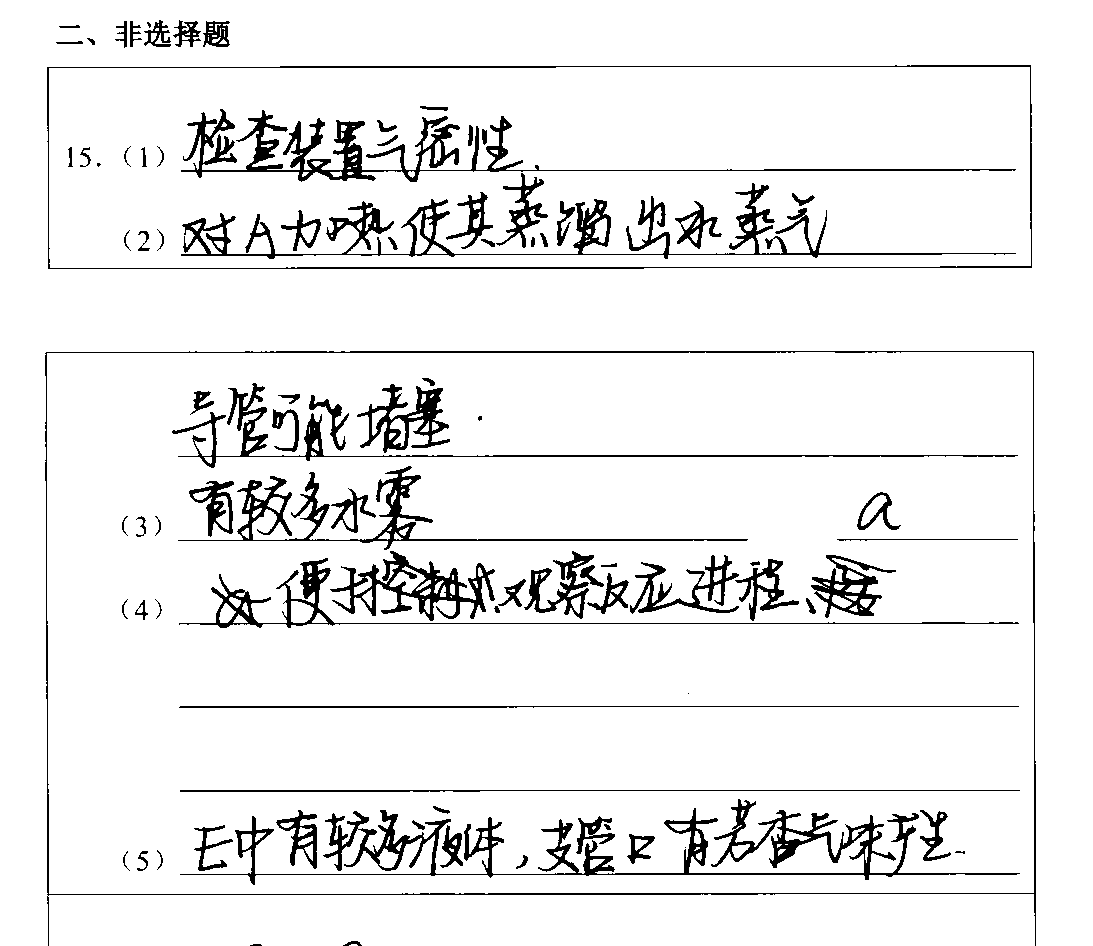 二、非选择题
15.（1）检查装置气密性.
（2）对A加热使其蒸馏出水蒸气
导管可能堵塞.
（3）有较多水雾 a
（4）便于控制观察反应进程、
（5）E中有较多液体，支管口有芳香气味产生.